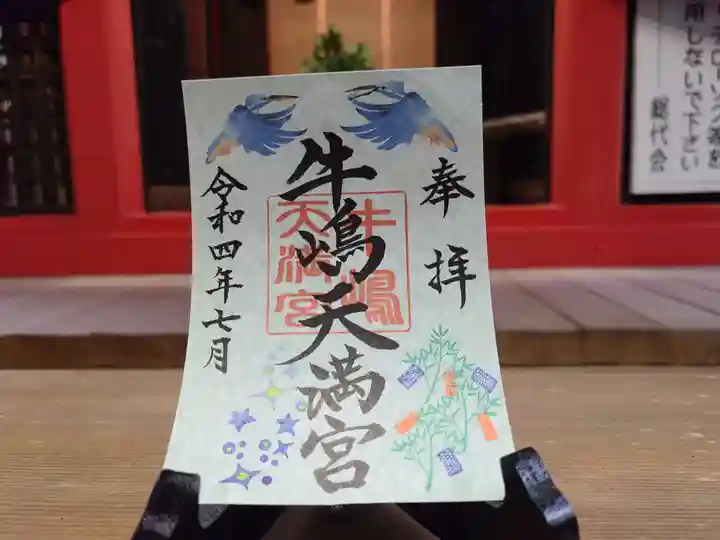 奉拝
牛嶋天満宮
牛嶋
天満宮
令和四年七月
用しないで下さい
総代会